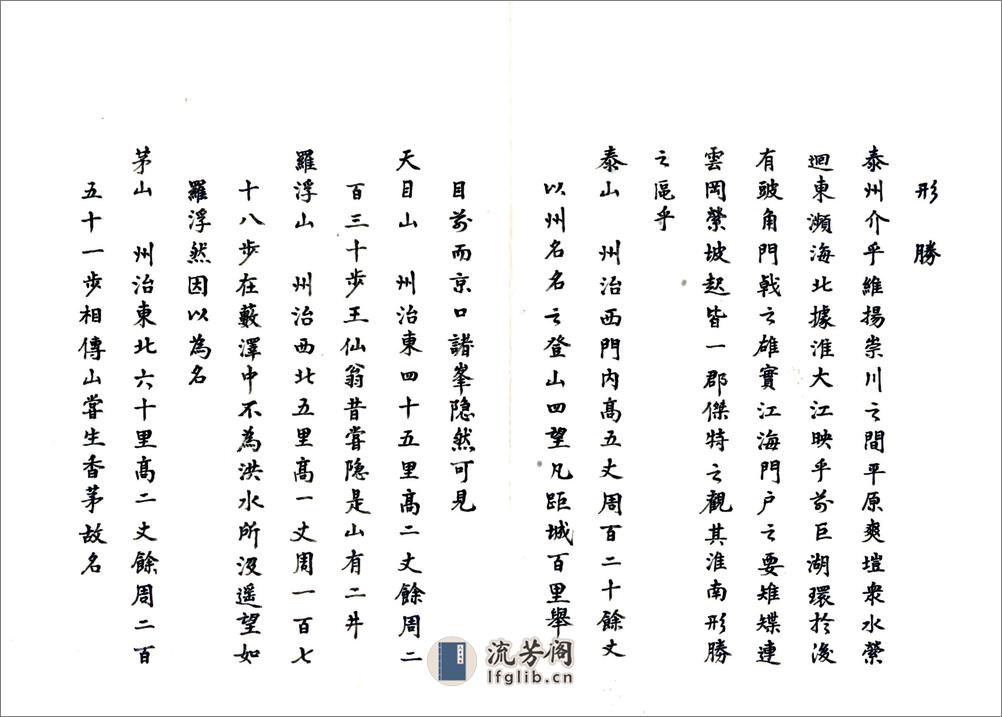 形勝
泰州介乎維揚崇川之間平原爽塏衆水縈
迴東瀕海北據淮大江映乎前巨湖環於後
有豉角門戟之雄實江海門户之要雉堞連
雲岡縈坡起皆一郡傑特之觀其淮南形勝
之區乎
泰山 州治西門内高五丈周百二十餘丈
以州名名之登山四望凡距城百里舉
目前而京口諸峯隐然可見
天目山 州治東四十五里高二丈餘周二
百三十步王仙翁昔嘗隐是山有二井
羅浮山 州治西北五里高一丈周一百七
十八步在藪澤中不為洪水所沒遥望如
羅浮然因以為名
茅山 州治東北六十里高二丈餘周二百
五十一步相傳山嘗生香茅故名
流芳阁
lfglib.cn